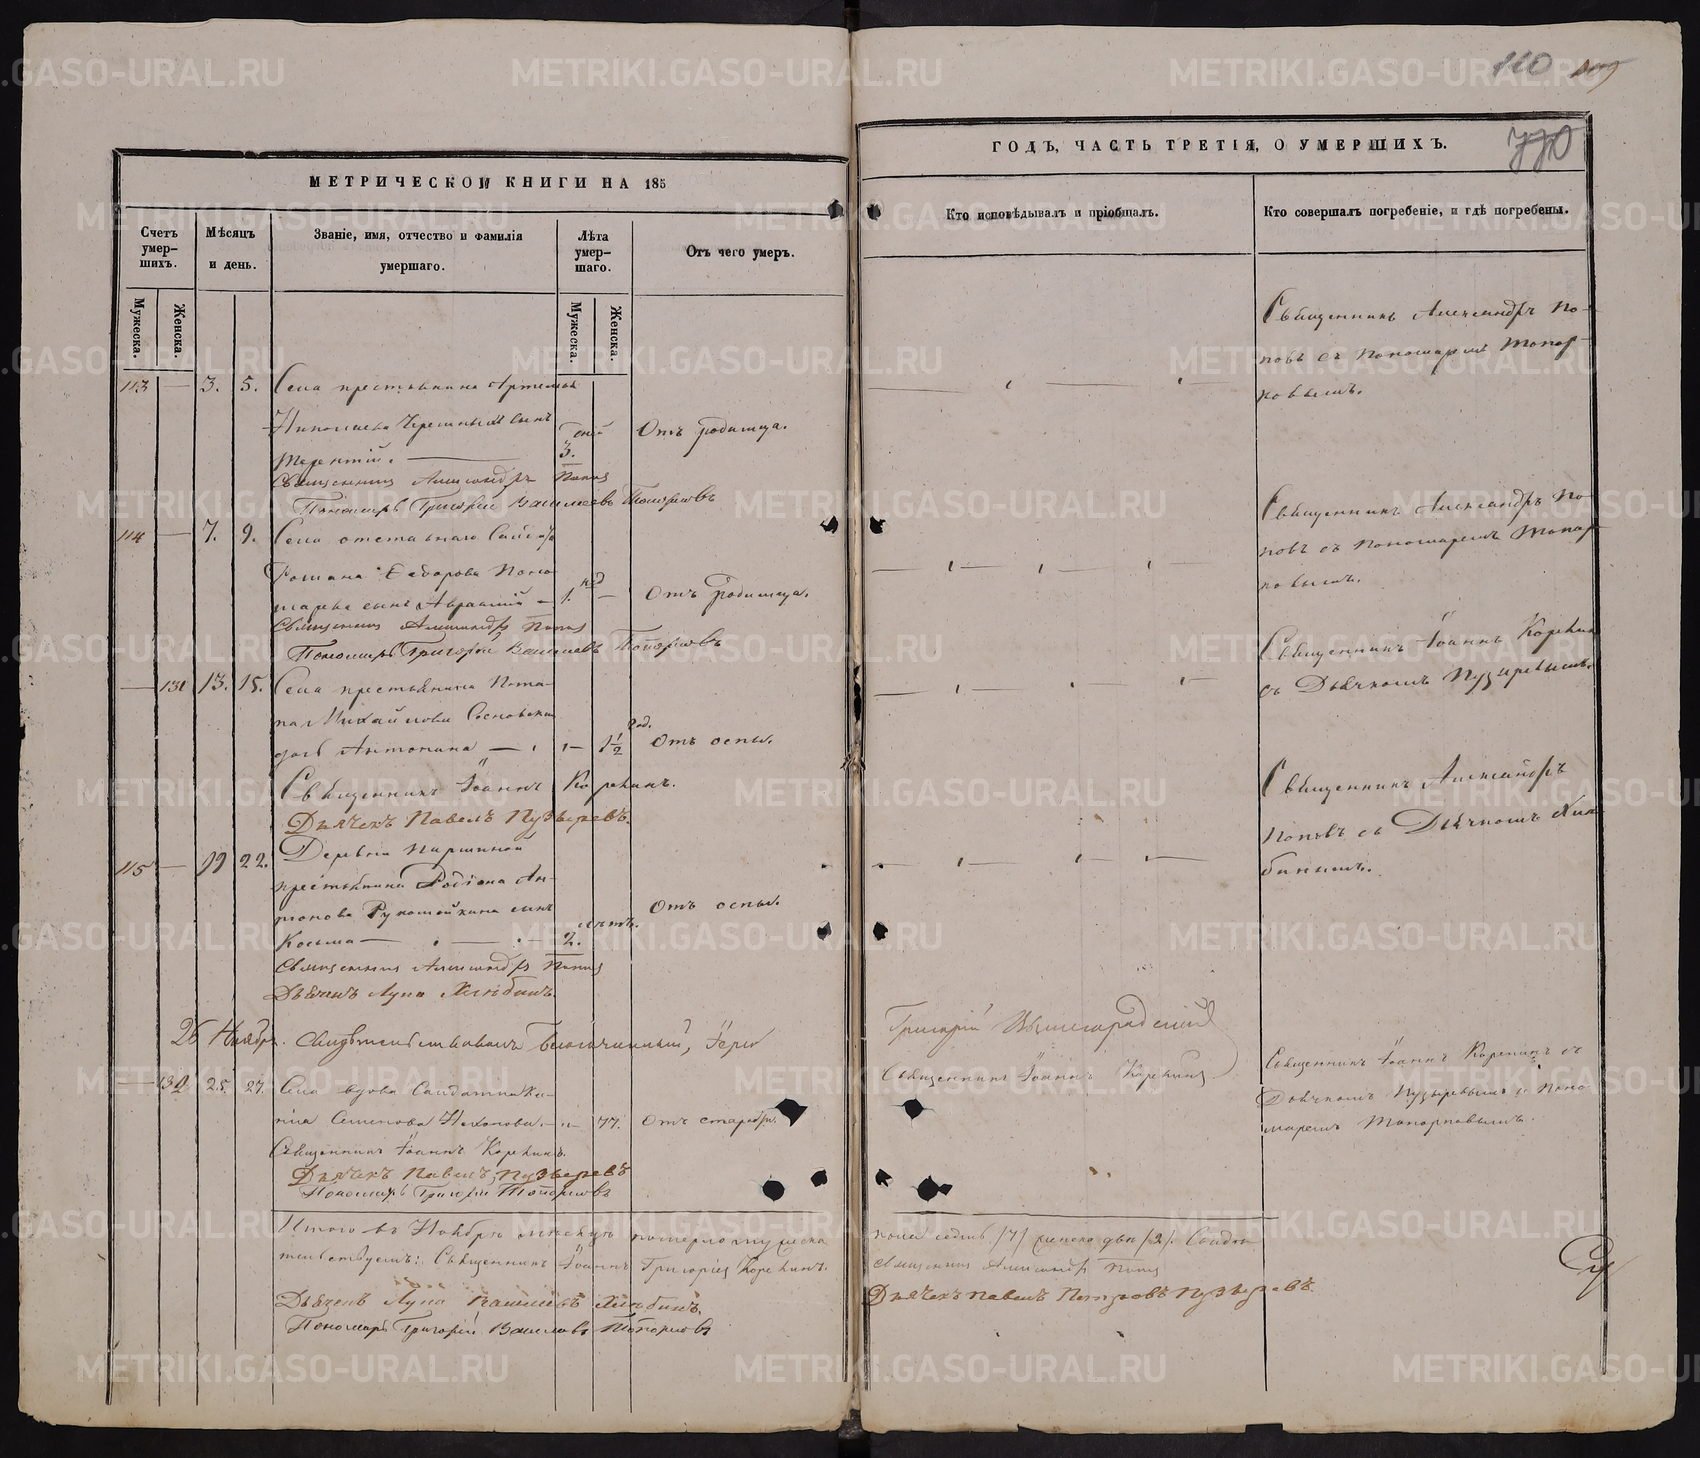 110
770
МЕТРИЧЕСКОЙ КНИГИ НА 185
ГОДЪ, ЧАСТЬ ТРЕТІЯ, О УМЕРШИХЪ.
Счетъ умер-
шихъ.
Мѣсяцъ
и день.
Званіе, имя, отчество и фамилія
умершаго.
Лѣта
умер-
шаго.
Отъ чего умеръ.
Кто исповѣдывалъ и пріобщалъ.
Кто совершалъ погребеніе, и гдѣ погребены.
Мужеска.
Женска.
Мужеска.
Женска.
113 — 3. 5. Села крестьянина Артемья
Николаева сынъ
Терентій. — дней 3. Отъ родимца.
Священникъ Александръ Поповъ
Пономарь Григорій Васильевъ Топорковъ
Священникъ Александръ По-
повъ съ Пономаремъ Топор-
ковымъ.
114 — 7. 9. Села отставнаго
Романа Федорова Поно-
марева сынъ — 1. нед — Отъ родимца.
Священникъ Александръ Поповъ
Пономарь Григорій Васильевъ Топорковъ
Священникъ Александръ По-
повъ съ Пономаремъ Топор-
ковымъ.
— 131 13. 15. Села крестьянина Пота-
па Михайлова Сосновскаго
дочь Антонина — 1½ год. Отъ оспы.
Священникъ Іоаннъ Корелинъ.
Дьячекъ Павелъ Пузыревъ.
Священникъ Іоаннъ Корелинъ
съ Дьячкомъ Пузыревымъ.
115 — 19 22. Деревни Паршиной
крестьянина Родіона Ан-
тонова сынъ
Косьма — 2. лѣтъ. Отъ оспы.
Священникъ Александръ Поповъ
Дьячекъ Лука Хлѣбинъ.
Священникъ Александръ
Поповъ съ Дьячкомъ Хлѣ-
бинымъ.
26 Ноября. Свидѣтельствовалъ Благочинный, Іерей
Григорій Вышегородскій
— 132 25. 27. Села вдова Солдатка
Семенова — 77. Отъ старости.
Священникъ Іоаннъ Корелинъ.
Дьячекъ Павелъ Пузыревъ
Пономарь Григорій Топорковъ
Священникъ Іоаннъ Корелинъ
Священникъ Іоаннъ Корелинъ съ
Дьячкомъ Пузыревымъ и Поно-
маремъ Топорковымъ.
Итого въ Ноябрѣ мѣсяцѣ померло мужеска
пола седмь /7/ женска два /2/. Свидѣ-
тельствуемъ: Священникъ Іоаннъ Григорьевъ Корелинъ.
Священникъ Александръ Поповъ
Дьячекъ Лука Васильевъ Хлѣбинъ.
Дьячекъ Павелъ Петровъ Пузыревъ
Пономарь Григорій Васильевъ Топорковъ
METRIKI.GASO-URAL.RU